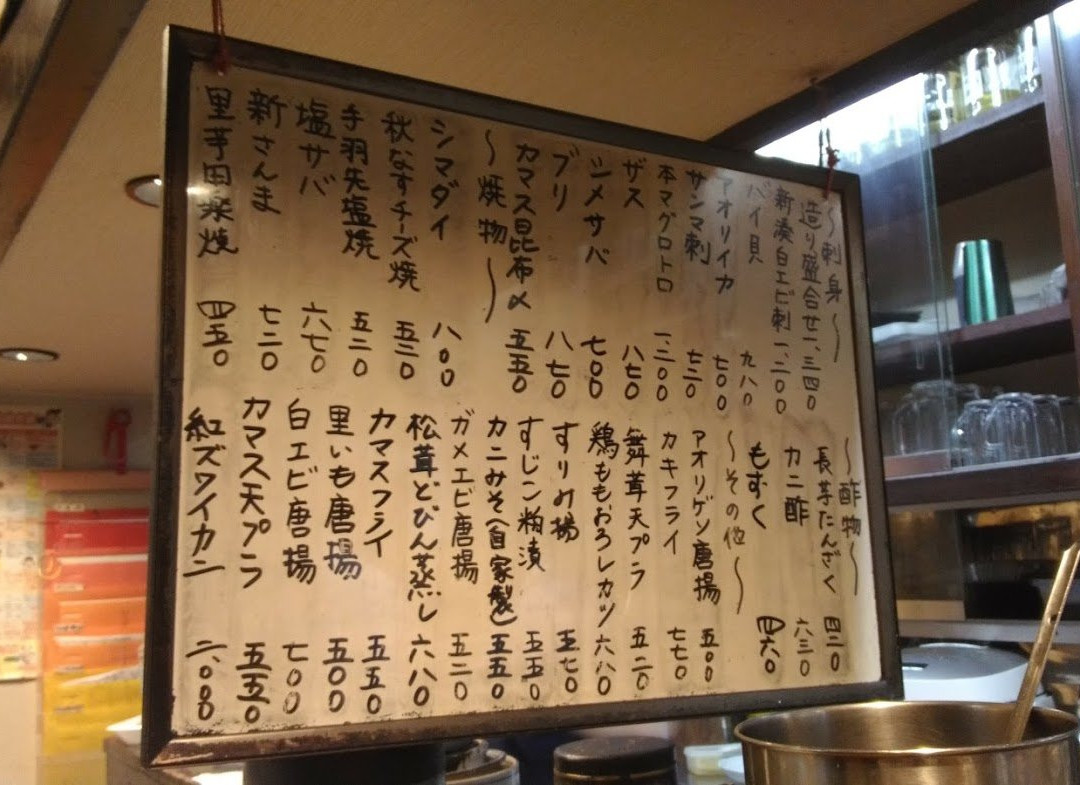 〜刺身〜
造り盛合せ 一、三四〇
新湊白エビ刺 一、二〇〇
バイ貝 九八〇
アオリイカ 七〇〇
サンマ刺 七三〇
本マグロトロ 一、二〇〇
ザス 八七〇
シメサバ 七〇〇
ブリ 八七〇
カマス昆布〆 五五〇
〜焼物〜
シマダイ 八〇〇
秋なすチーズ焼 五三〇
手羽先塩焼 五二〇
塩サバ 六七〇
新さんま 七二〇
里芋田楽焼 四五〇
〜酢物〜
長芋たんざく 四二〇
カニ酢 六三〇
もずく 四六〇
〜その他〜
アオリゲソ唐揚 五〇〇
カキフライ 七七〇
舞茸天プラ 五二〇
鶏ももおろしカツ 六八〇
すりみ揚 五七〇
すじこ粕漬 五五〇
カニみそ(自家製) 五五〇
ガメエビ唐揚 五二〇
松茸どびん蒸し 六八〇
カマスフライ 五五〇
里いも唐揚 五〇〇
白エビ唐揚 七〇〇
カマス天プラ 五五〇
紅ズワイカニ 二、〇〇〇